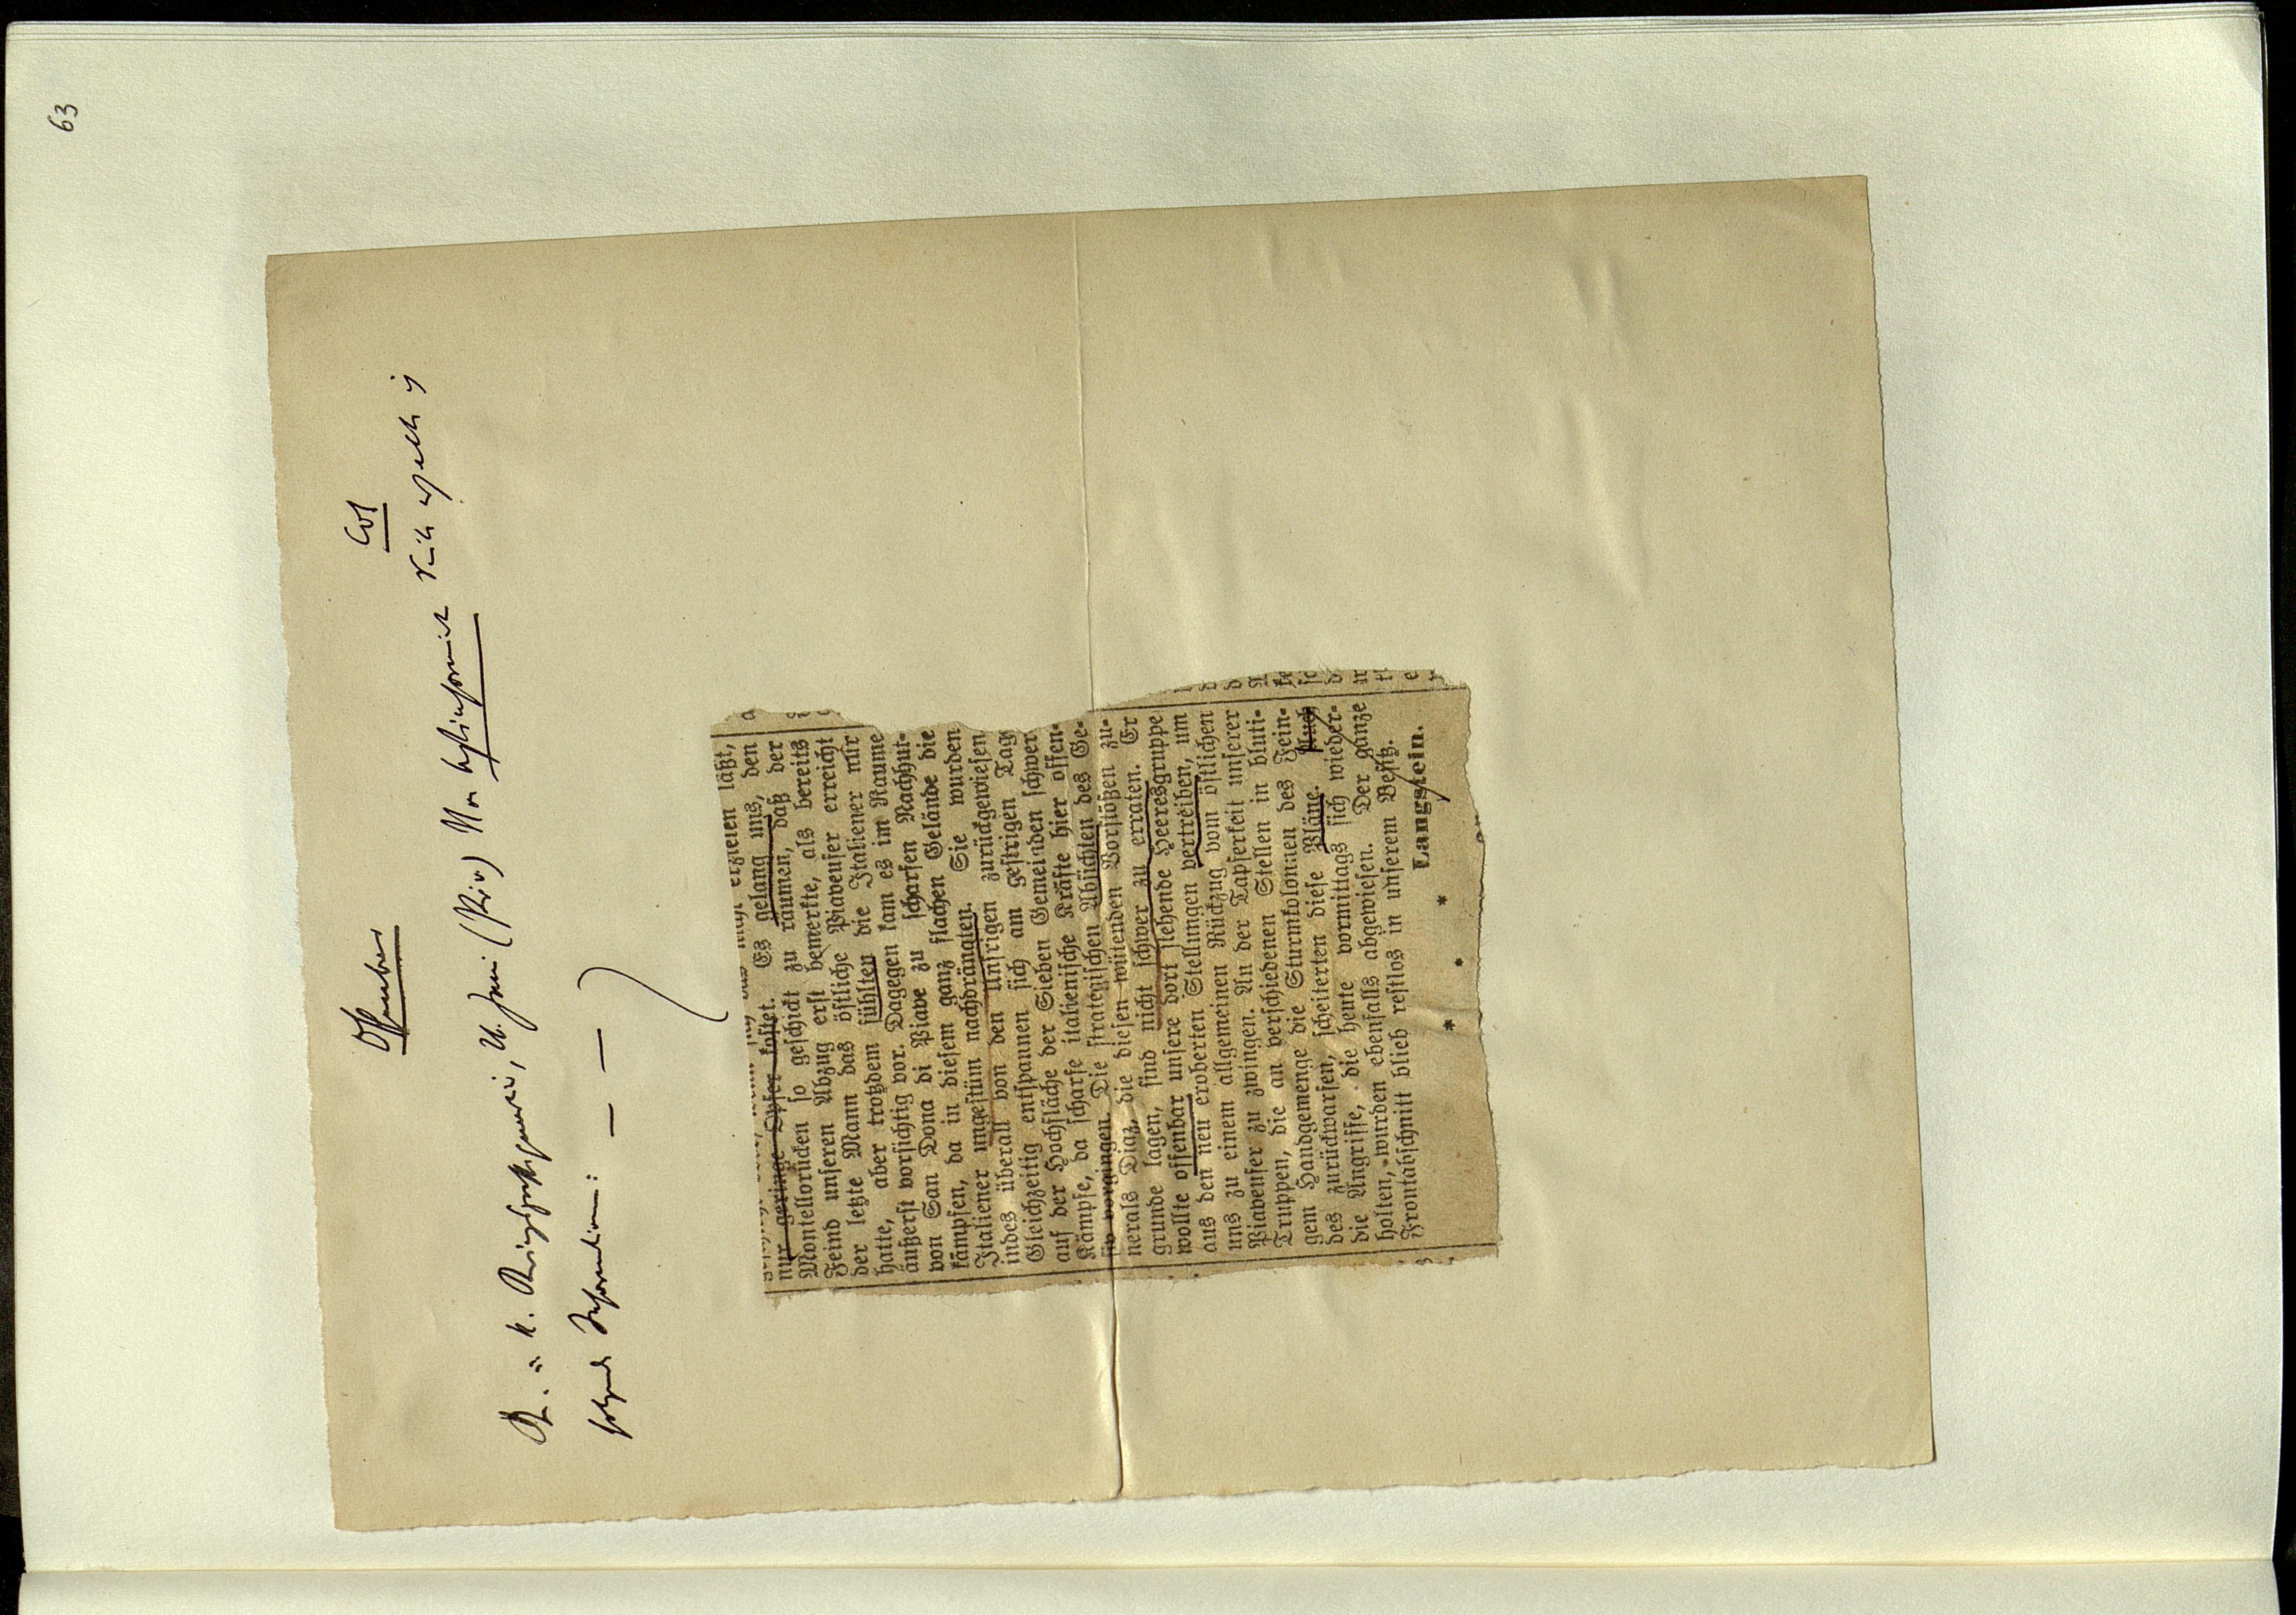 63
Offenbar
Col
K. u. k. Kriegspressequartier, 24. Juni (Priv.) Von
folgende Informationen: — —
nur geringe Opfer kostet. Es gelang uns, den
Montellorücken so geschickt zu räumen, daß der
Feind unseren Abzug erst bemerkte, als bereits
der letzte Mann das östliche Piaveufer erreicht
hatte, aber trotzdem fühlten die Italiener nur
äußerst vorsichtig vor. Dagegen kam es im Raume
von San Dona di Piave zu scharfen Nachhut-
kämpfen, da in diesem ganz flachen Gelände die
Italiener ungestüm nachdrängten. Sie wurden
indes überall von den Unsrigen zurückgewiesen
Gleichzeitig entspannen sich am gestrigen Tag
auf der Hochfläche der Sieben Gemeinden schwer
Kämpfe, da scharfe italienische Kräfte hier offen-
siv vorgingen. Die strategischen Absichten des Ge-
nerals Diaz, die diesen wütenden Vorstößen zu-
grunde lagen, sind nicht schwer zu erraten. Er
wollte offenbar unsere dort stehende Heeresgruppe
aus den neu eroberten Stellungen vertreiben, um
uns zu einem allgemeinen Rückzug vom östlichen
Piaveufer zu zwingen. An der Tapferkeit unserer
Truppen, die an verschiedenen Stellen in bluti-
gem Handgemenge die Sturmkolonnen des Fein-
des zurückwarfen, scheiterten diese Pläne. Auch
die Angriffe, die heute vormittags sich wieder-
holten, wurden ebenfalls abgewiesen. Der ganze
Frontabschnitt blieb restlos in unserem Besitz.
Langstein.
* * *